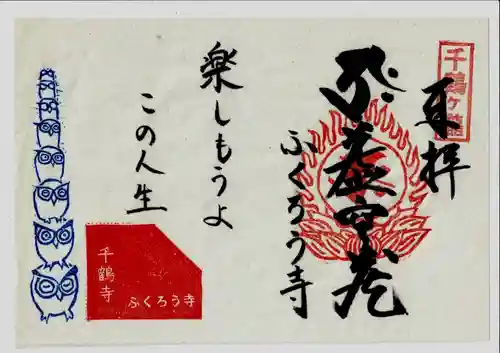 千鶴ヶ詣
奉拝
虚空蔵
ふくろう寺
楽しもうよ
この人生
千鶴寺
ふくろう寺